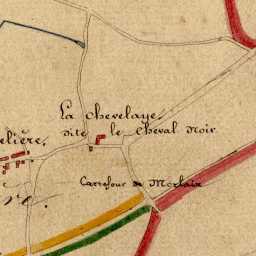 La Chevelaye,
dite le Cheval Noir
elière,
Carrefour de Morlaix